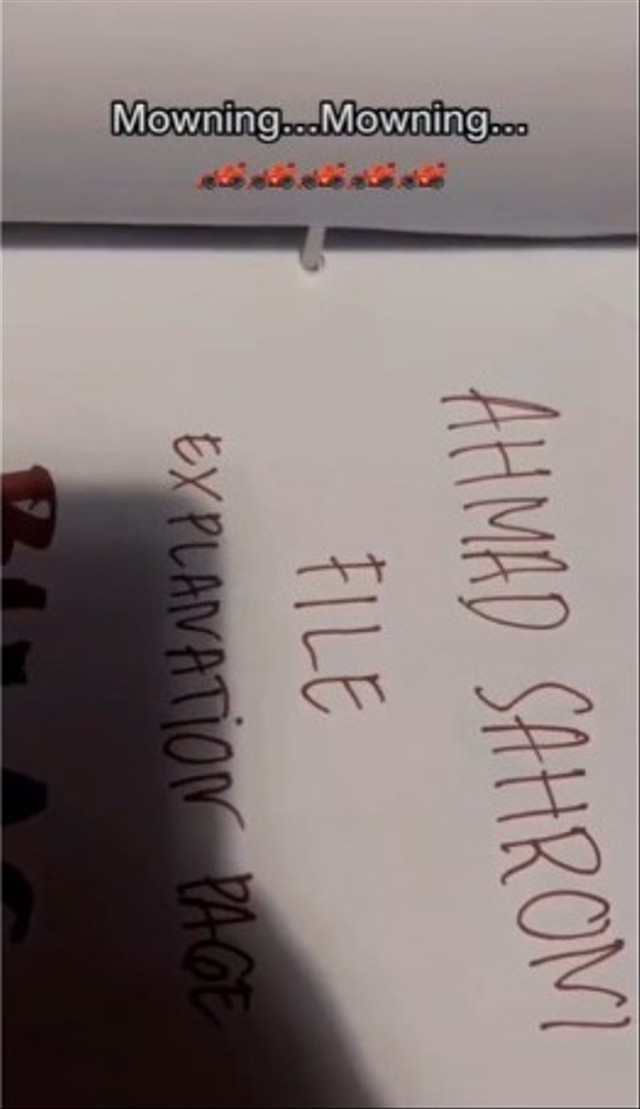 Mowning...Mowning...
AHMAD SAHRONI
FILE
EXPLANATION PAGE